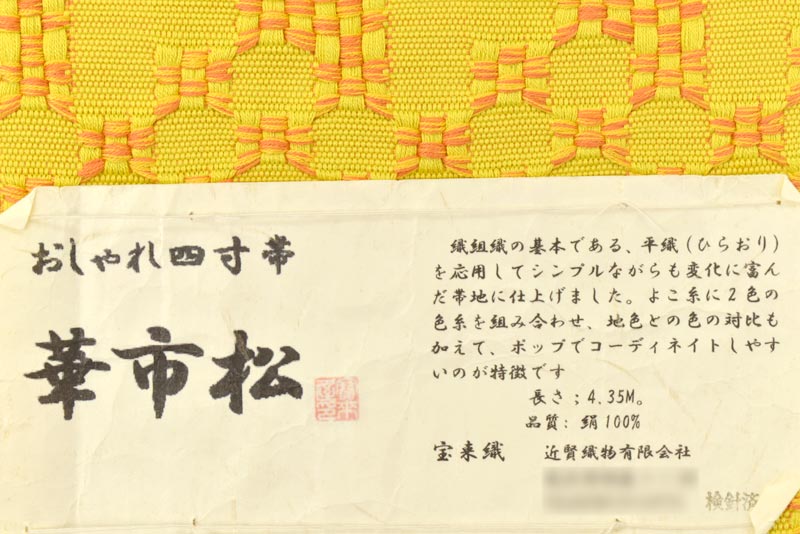 おしゃれ四寸帯
華市松
織組織の基本である、平織(ひらおり)
を応用してシンプルながらも変化に富ん
だ帯地に仕上げました。よこ糸に2色の
色糸を組み合わせ、地色との色の対比も
加えて、ポップでコーディネイトしやす
いのが特徴です
長さ;4.35M。
品質: 絹100%
宝来織 近賢織物有限会社
検針済